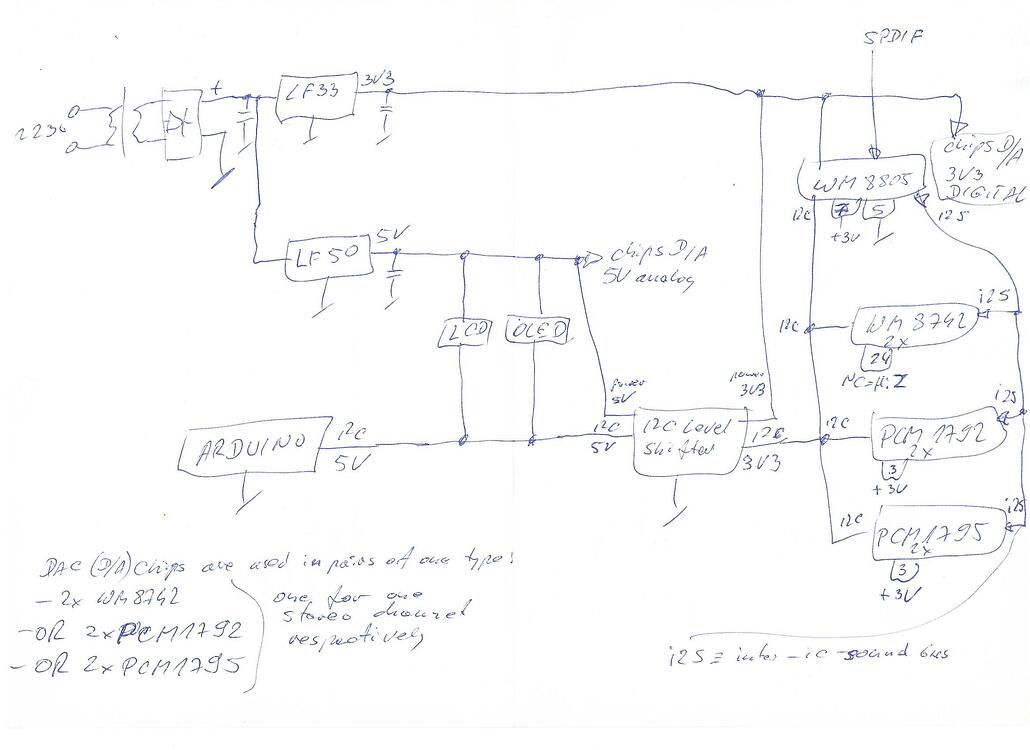 SPDIF
+
LF33
3V3
223V
chips D/A
3V3
DIGITAL
WM8805
I2C
7
5
+3V
i2S
LF50
5V
chips D/A
5V analog
LCD
OLED
I2C
WM8742
2x
i2S
24
NC=Hi Z
power
5V
power
3V3
ARDUINO
I2C
5V
I2C
5V
I2C Level
Shifter
I2C
3V3
I2C
PCM1792
2x
i2S
3
+3V
I2C
PCM1795
2x
i2S
3
+3V
DAC (D/A) Chips are used in pairs of one type:
- 2x WM8742
- OR 2xPCM1792
- OR 2xPCM1795
one for one
stereo channel
respectively
i2S ≡ inter-ic-sound bus